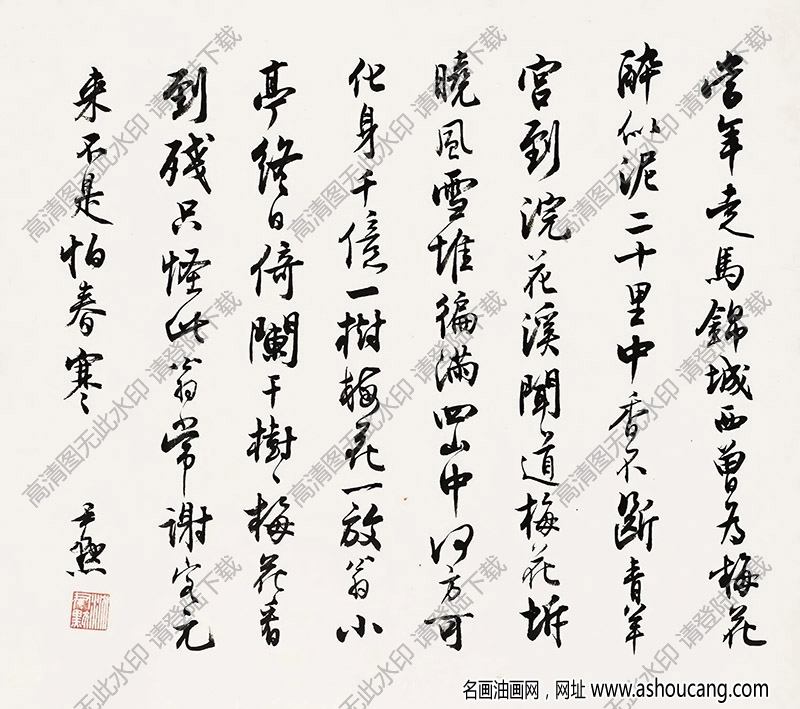 當年走馬錦城西曾為梅花
醉似泥二十里中香不斷青羊
宮到浣花溪聞道梅花坼
曉風雪堆徧滿四山中何方可
化身千億一樹梅花一放翁小
亭終日倚闌干樹〻梅花看
到殘只怪此翁常謝客元
来不是怕春寒
尹默
高清图无此水印 请登陆下载
名画油画网，网址 www.ashoucang.com